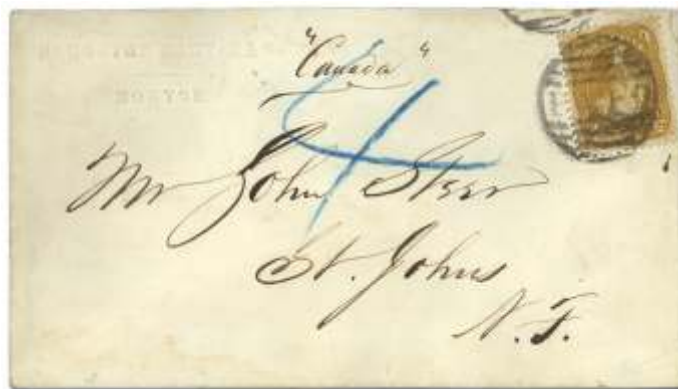 "Canada"
4
Mr John Steer
St. Johns
N. F.